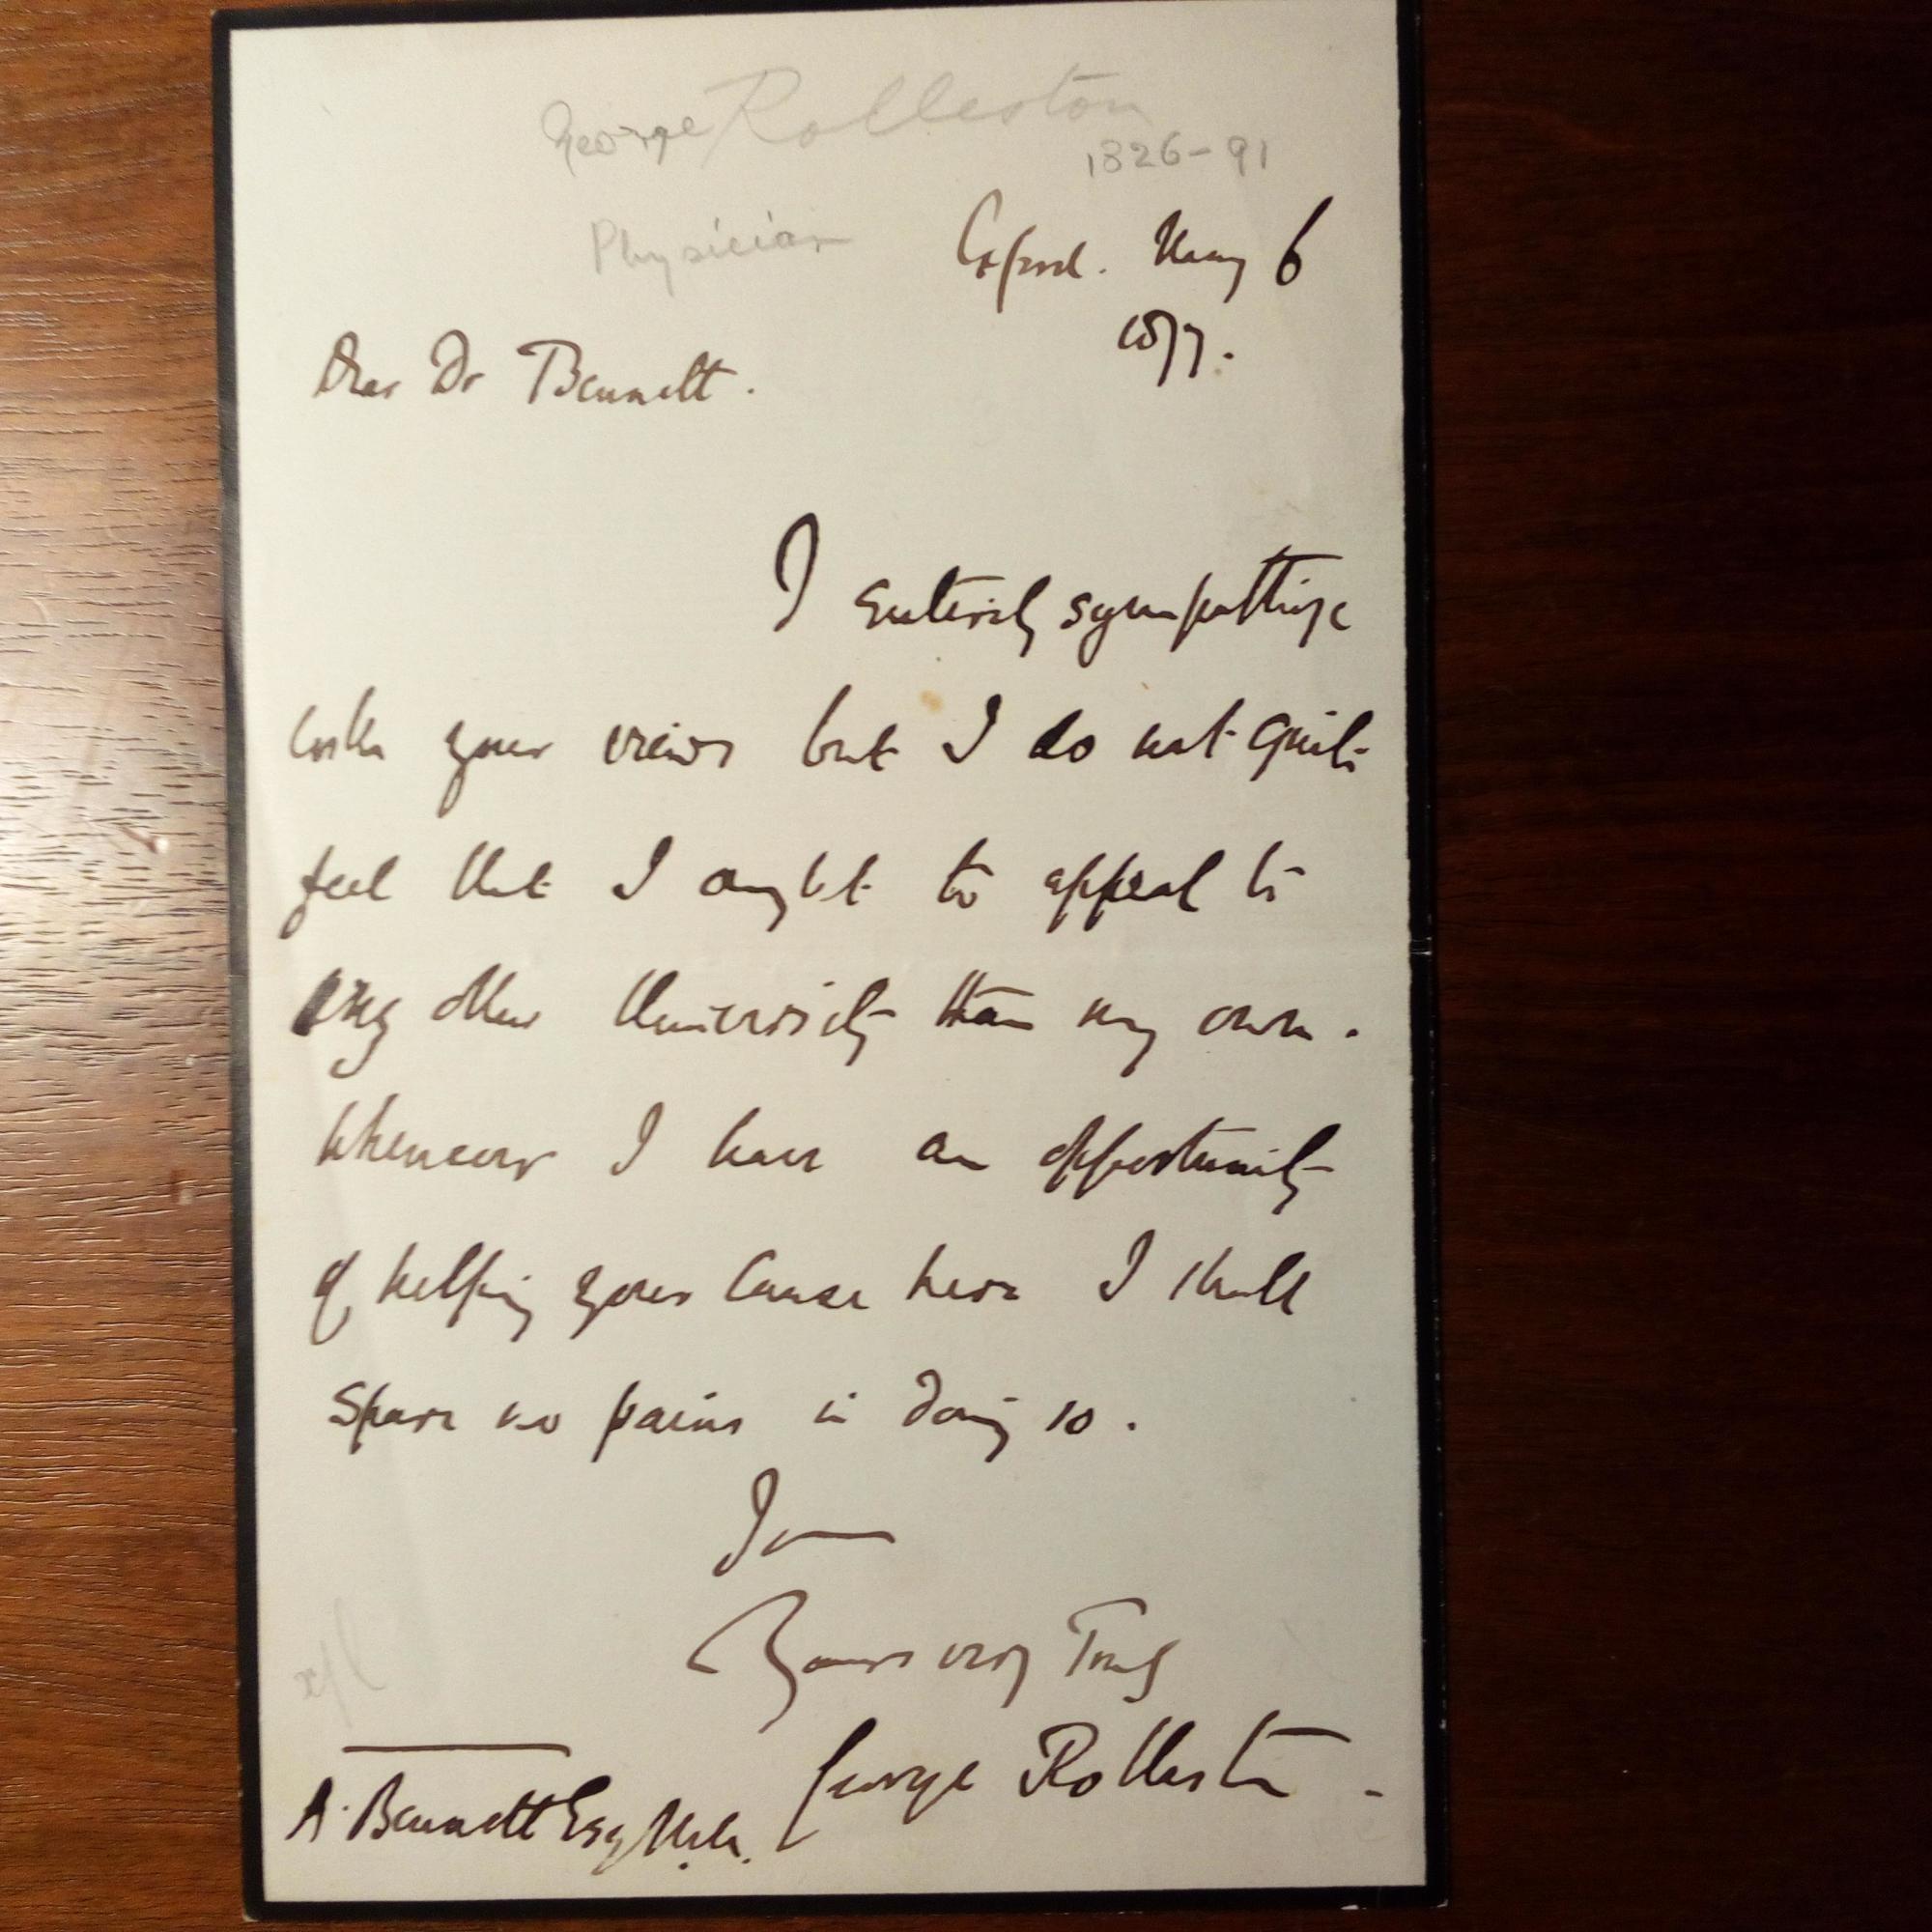 George Rolleston
1826-91
Physician
Oxford. May 6
1877.
Dear Dr Bennett.
I entirely sympathize
with your views but I do not quite
feel that I ought to appeal to
any other University than my own.
Whenever I have an opportunity
of helping your cause here I shall
spare no pains in doing so.
I am
Yours very Truly
George Rolleston.
A. Bennett Esq